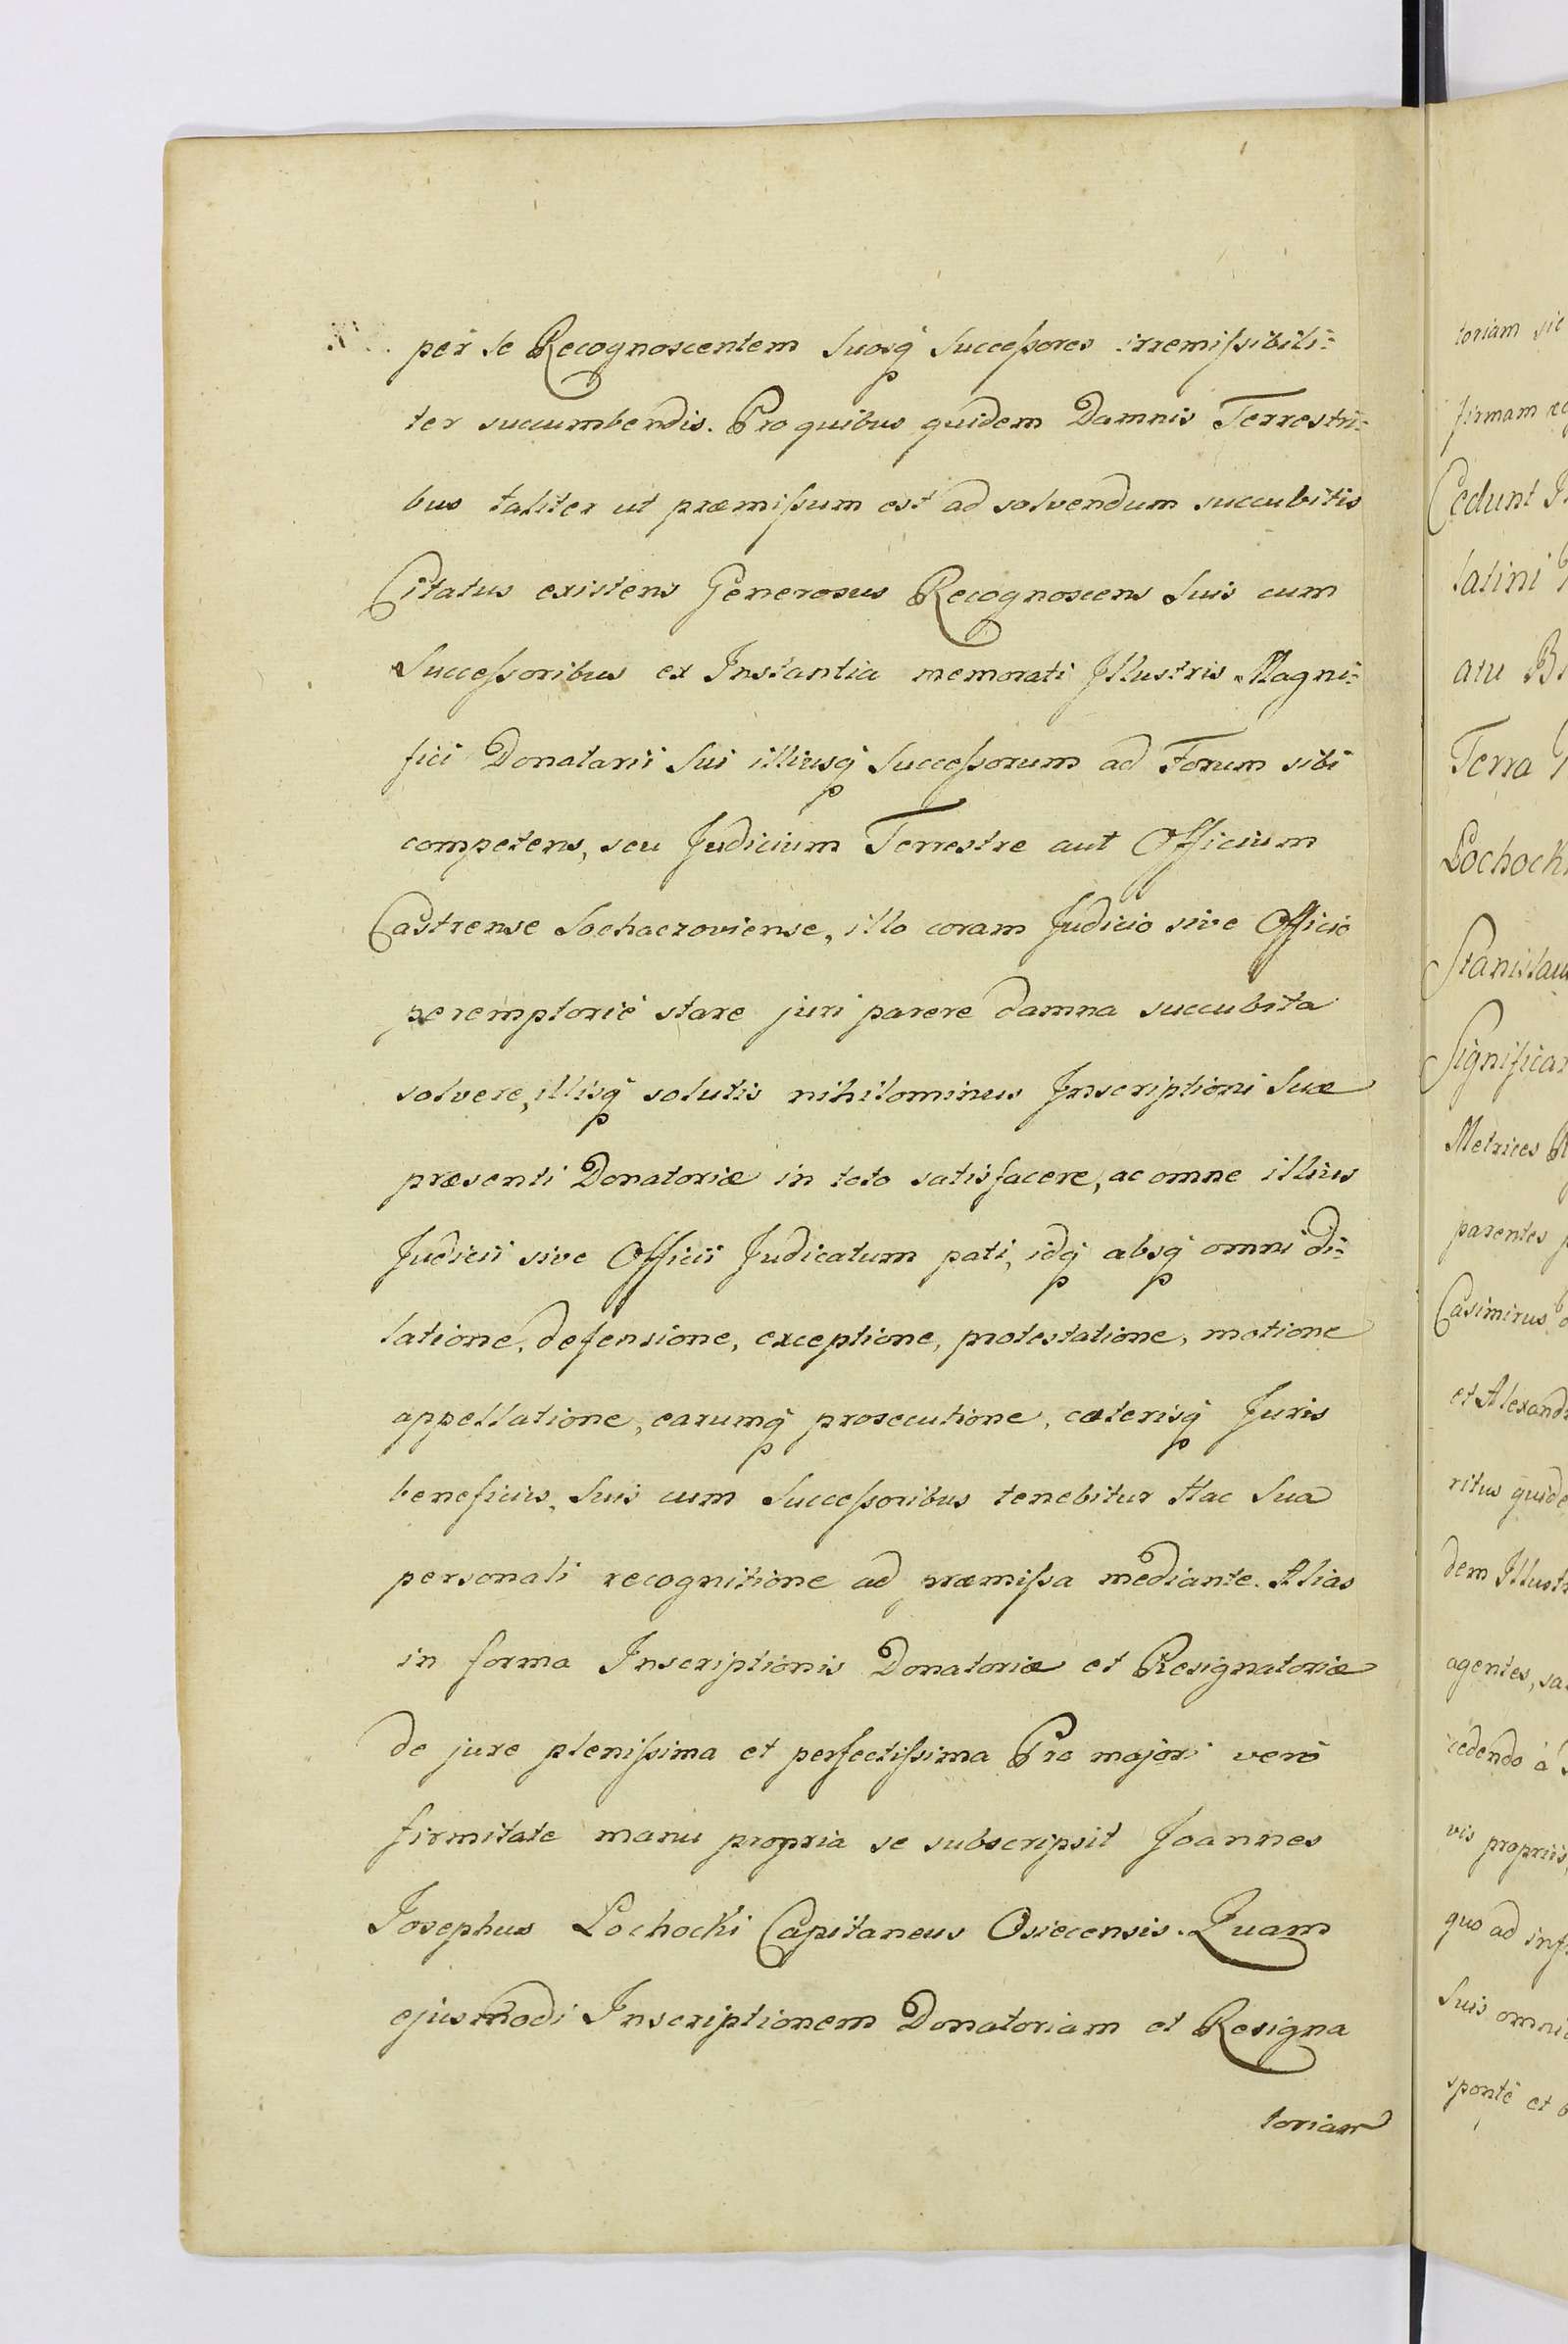 per se Recognoscentem Suosq̃ Succeſsores irremiſsibili:
ter succumbendis. Pro quibus quidem Damnis Terrestri:
bus taliter ut præmiſsum est ad solvendum succubitis
Citatus existens Generosus Recognoscens Suis cum
Succeſsoribus ex Instantia memorati Illustris Magni:
fici Donatarii Sui illiusq̃ Succeſsorum ad Forum sibi
competens, seu Judicium Terrestre aut Officium
Castrense Sochaczoviense, illo coram Judicio sive Officio
peremptoriè stare juri parere damna succubita
solvere, illisq̃ solutis nihilominus Inscriptioni Suæ
præsenti Donatoriæ in toto satisfacere, ac omne illius
Judicii sive Officii Judicatum pati, idq̃ absq̃ omni di:
latione, defensione, exceptione, protestatione, motione
appellatione, earumq̃ prosecutione, cæterisq̃ Juris
beneficiis, Suis cum Succeſsoribus tenebitur Hac Sua
personali recognitione ad præmiſsa mediante. Alias
in forma Inscriptionis Donatoriæ et Resignatoriæ
de jure pleniſsima et perfectiſsima Pro majori verò
firmitate manu propria se subscripsit Joannes
Josephus Lochocki Capitaneus Osiecensis. Quam
ejusmodi Inscriptionem Donatoriam et Resigna
toriam
toriam sic
firmam
Cedunt
latini
atu
Terra
Lochocki
Stanislau
Significa
Metrices
parentes
Casimirus
et Alexand
ritus quide
dem Illust
agentes, sa
cedendo à
vis propriis,
quo ad inf
Suis omni
spontè et